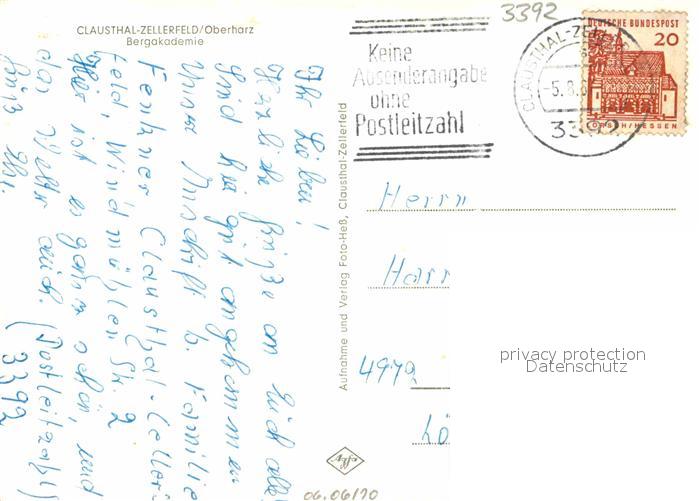 CLAUSTHAL-ZELLERFELD/Oberharz
Bergakademie
3392
Keine
Absenderangabe
ohne
Postleitzahl
CLAUSTHAL-ZEL
-5.8.6
3392
DEUTSCHE BUNDESPOST
20
LORSCH/HESSEN
Ihr Lieben!
Herzliche Grüße an Euch alle
Sind hier gut angekommen
Unsere Anschrift b. Familie
Fenkner Clausthal-Celler
feld, Windmühlen Str. 2
Hier ist es ganz schön, und
das Wetter auch. (Postleitzahl)
3392
Aufnahme und Verlag Foto-Heß, Clausthal-Zellerfeld
Herrn
Harr
4970
Lö
Agfa
06.06/70
privacy protection
Datenschutz